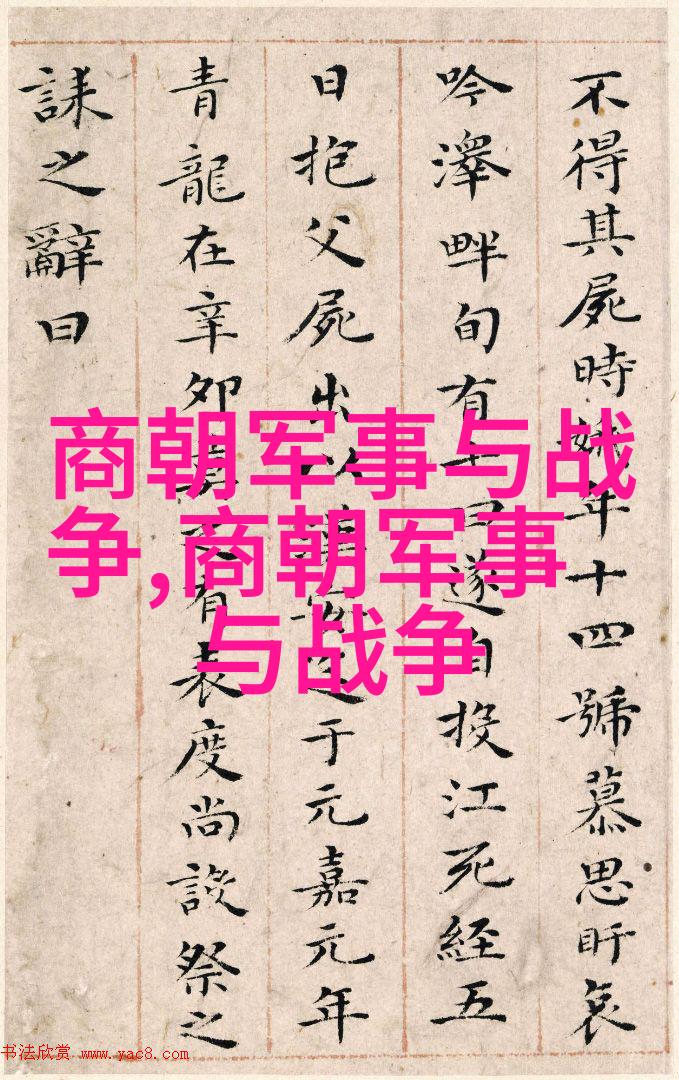 不得其屍時娥年十四號慕思盱哀
吟澤畔旬有七日遂自投江死經五
日抱父屍出以漢安迄于元嘉元年
青龍在辛卯莫之有表度尚設祭之
誄之辭曰
商朝军事与战
争,商朝军事
与战争
书法欣赏 www.yac8.com